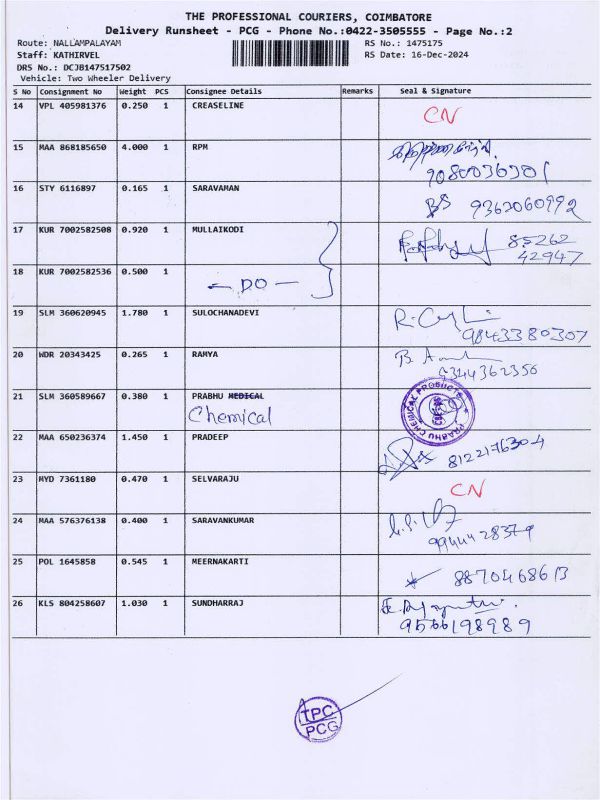 THE PROFESSIONAL COURIERS, COIMBATORE
Delivery Runsheet - PCG - Phone No.:0422-3505555 - Page No.:2
Route: NALLAMPALAYAM RS No.: 1475175
Staff: KATHIRVEL RS Date: 16-Dec-2024
DRS No.: DCJB147517502
Vehicle: Two Wheeler Delivery
S No Consignment No Weight PCS Consignee Details Remarks Seal & Signature
14 VPL 405981376 0.250 1 CREASELINE CN
15 MAA 868185650 4.000 1 RPM
9080036301
16 STY 6116897 0.165 1 SARAVAMAN BS 9362060992
17 KUR 7002582508 0.920 1 MULLAIKODI 85262
42947
18 KUR 7002582536 0.500 1
- DO -
19 SLM 360620945 1.780 1 SULOCHANADEVI
9843380307
20 WDR 20343425 0.265 1 RAMYA
9344362356
21 SLM 360589667 0.380 1 PRABHU MEDICAL
Chemical
PRABHU CHEMICAL PRODUCTS
22 MAA 650236374 1.450 1 PRADEEP 8122176304
23 MYD 7361180 0.470 1 SELVARAJU CN
24 MAA 576376138 0.400 1 SARAVANKUMAR
9944428379
25 POL 1645858 0.545 1 MEERNAKARTI
8870468613
26 KLS 804258607 1.030 1 SUNDHARRAJ
9566198989
TPC
PCG